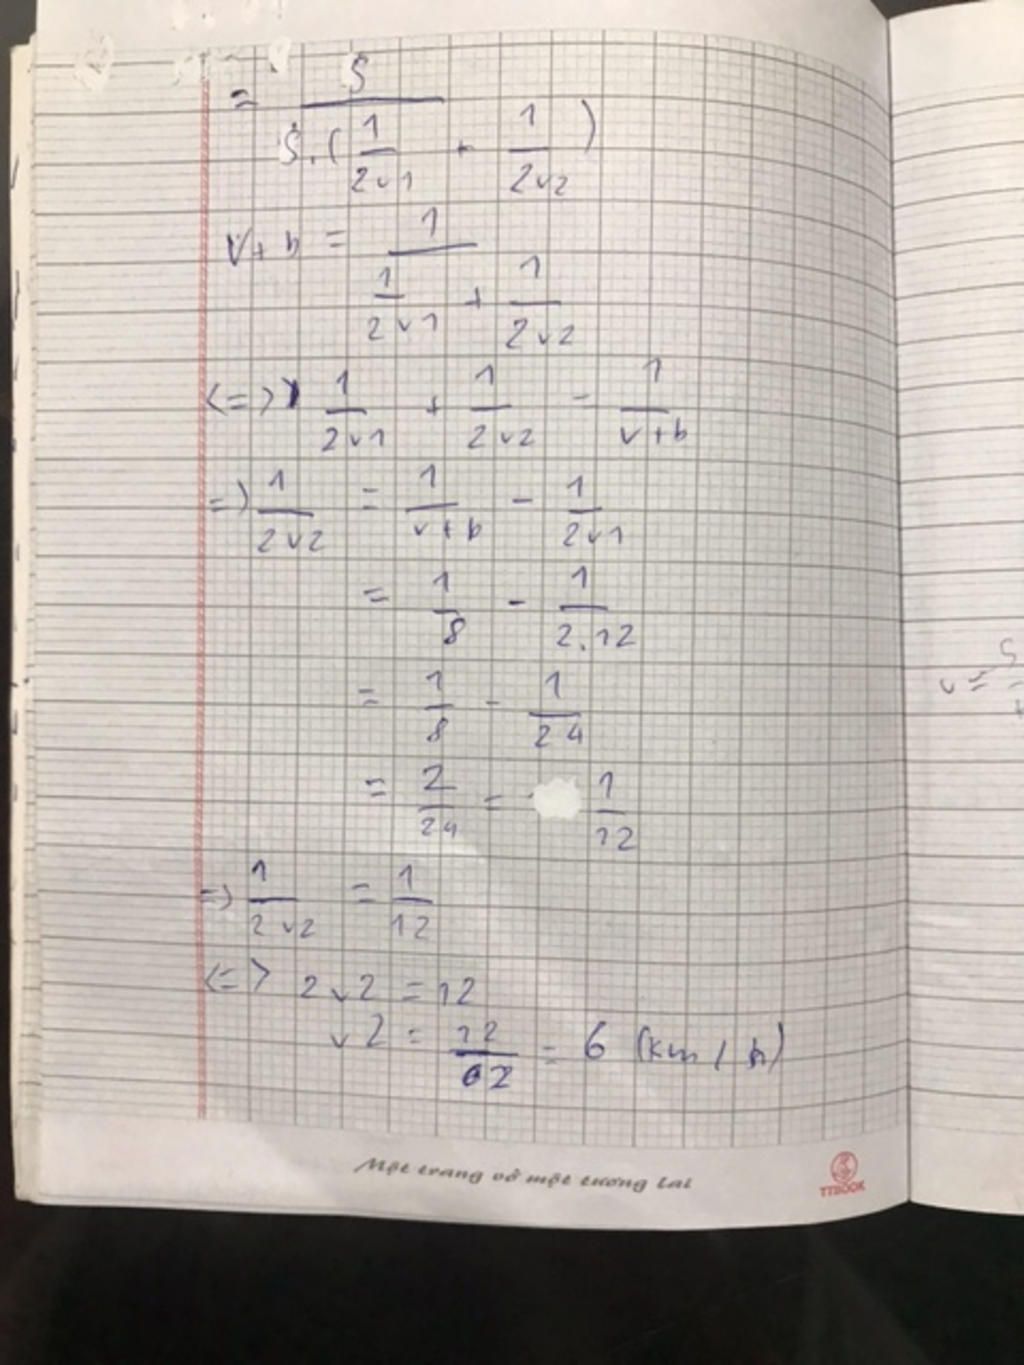 = S / S.(1/2v1 + 1/2v2)
v+b = 1 / (1/2v1 + 1/2v2)
<=> 1/2v1 + 1/2v2 = 1/v+b
=> 1/2v2 = 1/v+b - 1/2v1
= 1/8 - 1/2.12
= 1/8 - 1/24
= 2/24 = 1/12
=> 1/2v2 = 1/12
<=> 2v2 = 12
v2 = 12/2 = 6 (km/h)
Một trang vở một tương lai
TTBOOK